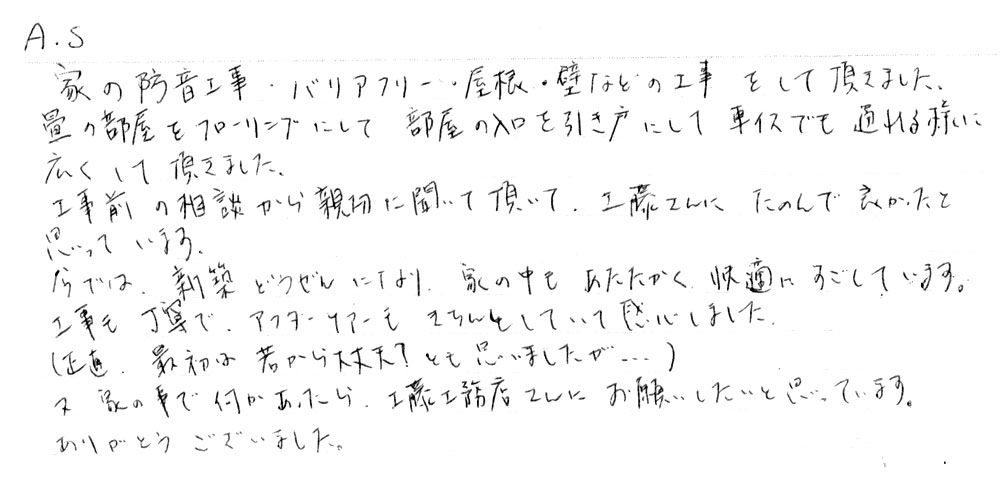 A.S
家の防音工事・バリアフリー・屋根・壁などの工事をして頂きました。
畳の部屋をフローリングにして 部屋の入口を引き戸にして 車イスでも通れる様に
広くして頂きました。
工事前の相談から親切に聞いて頂いて、工藤さんに たのんで良かったと
思っています。
今では、新築どうぜんになり、家の中もあたたかく、快適にすごしています。
工事も丁寧で、アフターケアーもきちんとしていて感心しました。
(正直、最初は若から大丈夫?とも思いましたが…)
又家の事で何かあったら、工藤工務店さんにお願いしたいと思っています。
ありがとうございました。